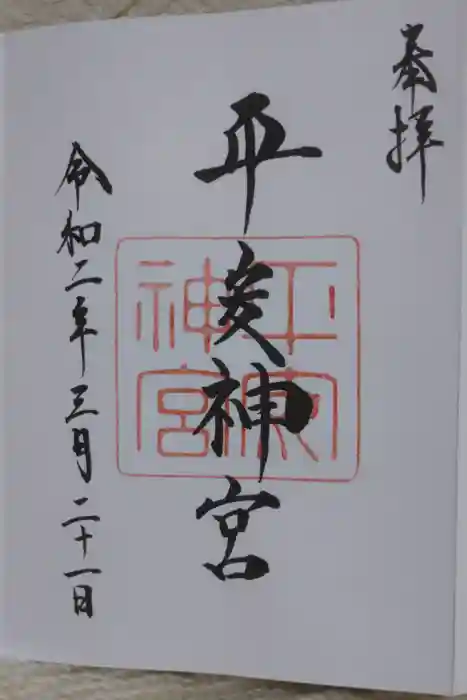 奉拝
平安神宮
平安神宮
令和二年三月二十一日